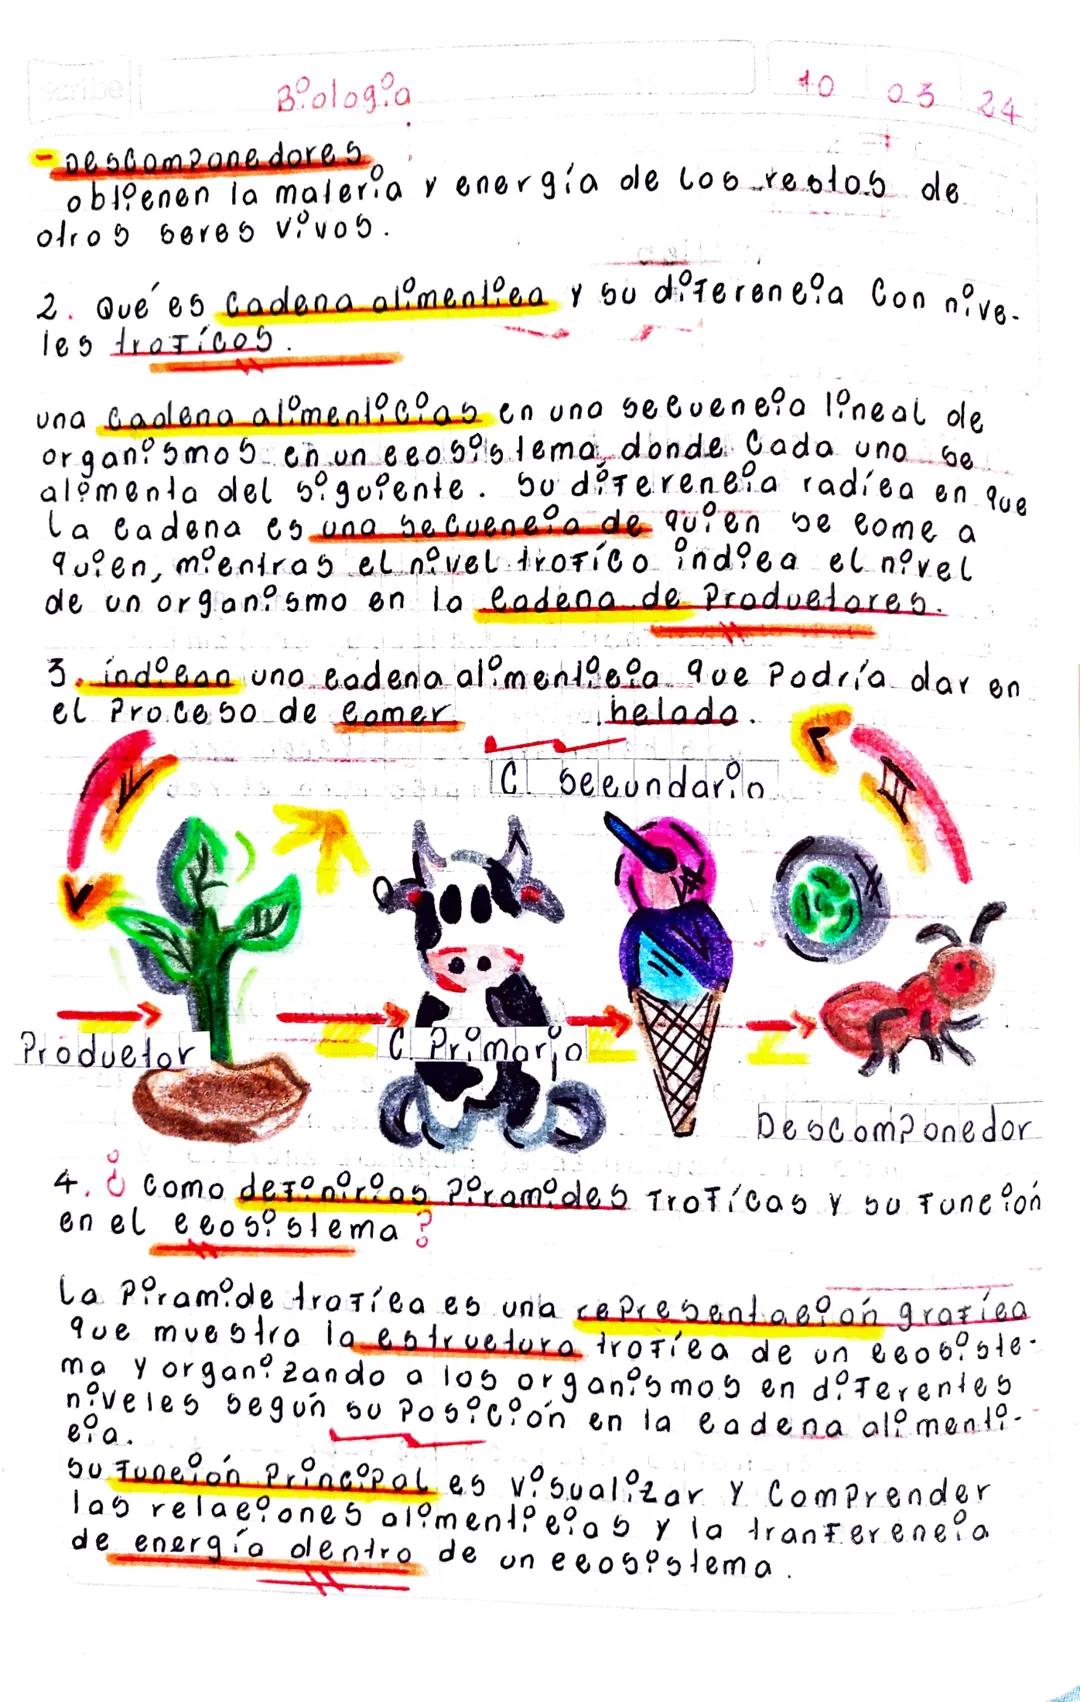 scribe
Biología 10 03 24
- Descomponedores
obtienen la materia y energía de los restos de
otros seres vivos.
2. Qué es cadena alimenticia y su diferencia con nive-
les troficos.
una cadena alimenticias en una secuencia lineal de
organismos en un ecosistema, donde cada uno se
alimenta del siguiente. Su diferencia radica en que
la cadena es una secuencia de quien se come a
quien, mientras el nivel trofico indica el nivel
de un organismo en la cadena de Productores.
3. indican una cadena alimenticia que Podría dar en
el Proceso de comer helado.
C Secundario
Productor
C Primario
Descomponedor
4. ¿ Como definirias Piramides Troficas y su función
en el ecosistema ?
La Piramide trofica es una representación grafica
que muestra la estructura trofica de un ecosiste-
ma y organizando a los organismos en diferentes
niveles según su Posición en la cadena alimenti-
cia.
su función Principal es visualizar y Comprender
las relaciones alimenticias y la tranferencia
de energía dentro de un ecosistema.